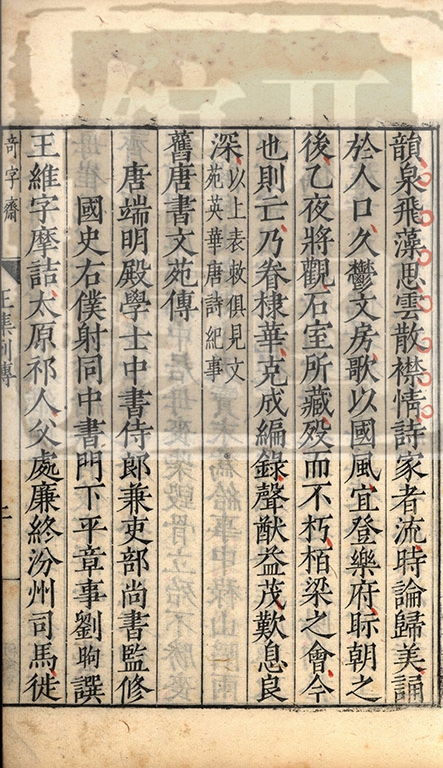 韻泉飛藻思雲散襟情詩家者流時論歸美誦
於人口久鬱文房歌以國風宜登樂府眎朝之
後乙夜將觀石室所藏歿而不朽栢梁之會今
也則亡乃眷棣華克成編錄聲猷益茂歎息良
深以上表敕俱見文
苑英華唐詩紀事
舊唐書文苑傳
唐端明殿學士中書侍郎兼吏部尚書監修
國史右僕射同中書門下平章事劉昫譔
王維字摩詰太原祁人父處廉終汾州司馬徙
奇字齋